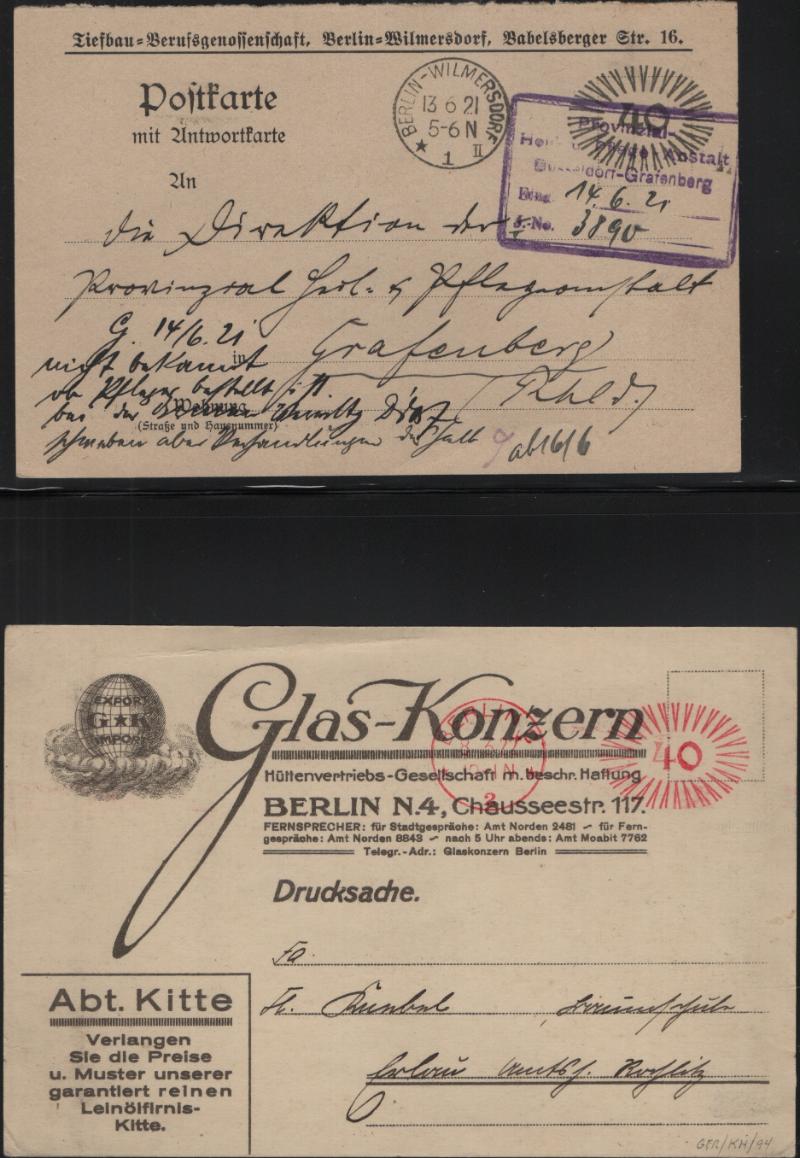 Tiefbau=Berufsgenossenschaft, Berlin=Wilmersdorf, Babelsberger Str. 16.
Postkarte
mit Antwortkarte
BERLIN-WILMERSDORF
13 6 21
5-6 N
★ 1 II
40
Provinzial-
Anstalt
Düsseldorf-Grafenberg
Eing. 14. 6. 21
J.-No. 3890
An
die Direktion der
Provinzial Heil- & Pflegeanstalt
G. 14/6. 21
in Grafenberg
nicht bekannt
(Rhld.)
ob Pfleger bestellt ist
Wohnung
bei der
(Straße und Hausnummer)
schweben aber Verhandlungen deshalb
ab 16/6
EXPORT
G★K
IMPORT
Glas-Konzern
BERLIN
40
Hüttenvertriebs-Gesellschaft m. beschr. Haftung
2
BERLIN N.4, Chausseestr. 117.
FERNSPRECHER: für Stadtgespräche: Amt Norden 2481 ~ für Fern-
gespräche: Amt Norden 8843 ~ nach 5 Uhr abends: Amt Moabit 7762
Telegr.-Adr.: Glaskonzern Berlin
Drucksache.
Fa.
Th. Knebel
Erlau Amtsh. Rochlitz
Abt. Kitte
Verlangen
Sie die Preise
u. Muster unserer
garantiert reinen
Leinölfirnis-
Kitte.
GER/KH/94